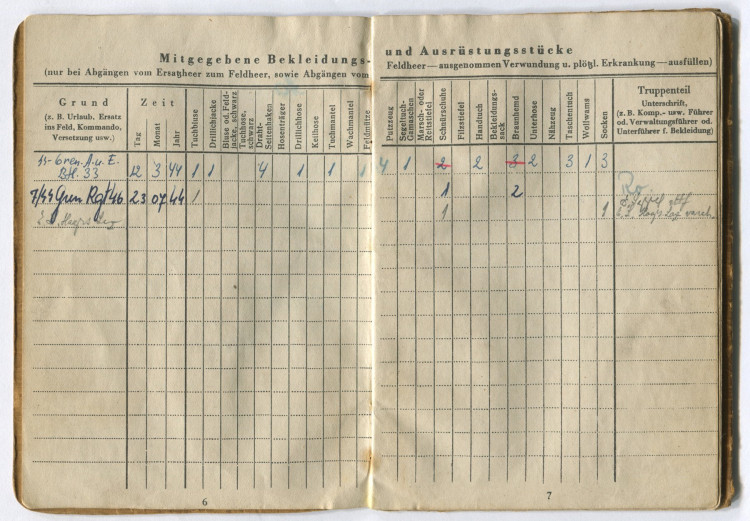 Mitgegebene Bekleidungs- und Ausrüstungsstücke
(nur bei Abgängen vom Ersatzheer zum Feldheer, sowie Abgängen vom Feldheer — ausgenommen Verwundung u. plötzl. Erkrankung — ausfüllen)
Grund
(z. B. Urlaub, Ersatz
ins Feld, Kommando,
Versetzung usw.)
Zeit
Tag
Monat
Jahr
Tuchbluse
Drillichjacke
Bluse od. Feld-
jacke, schwarz
Tuchhose,
schwarz
Draht-
Seitenhaken
Hosenträger
Drillichhose
Keilhose
Tuchmantel
Wachmantel
Feldmütze
Putzzeug
Segeltuch-
Gamaschen
Marsch- oder
Reitstiefel
Schnürschuhe
Filzstiefel
Handtuch
Bekleidungs-
sack
Braunhemd
Unterhose
Nähzeug
Taschentuch
Wollwams
Socken
Truppenteil
Unterschrift,
(z. B. Komp.- usw. Führer
od. Verwaltungsführer od.
Unterführer f. Bekleidung)
Gren. A. u. E.
Btl. 33 12 3 44 1 1 4 1 1 1 4 1 2 2 3 2 3 1 3
Gren Rgt 46 23 07 44 1 1 2
1 1
6
7